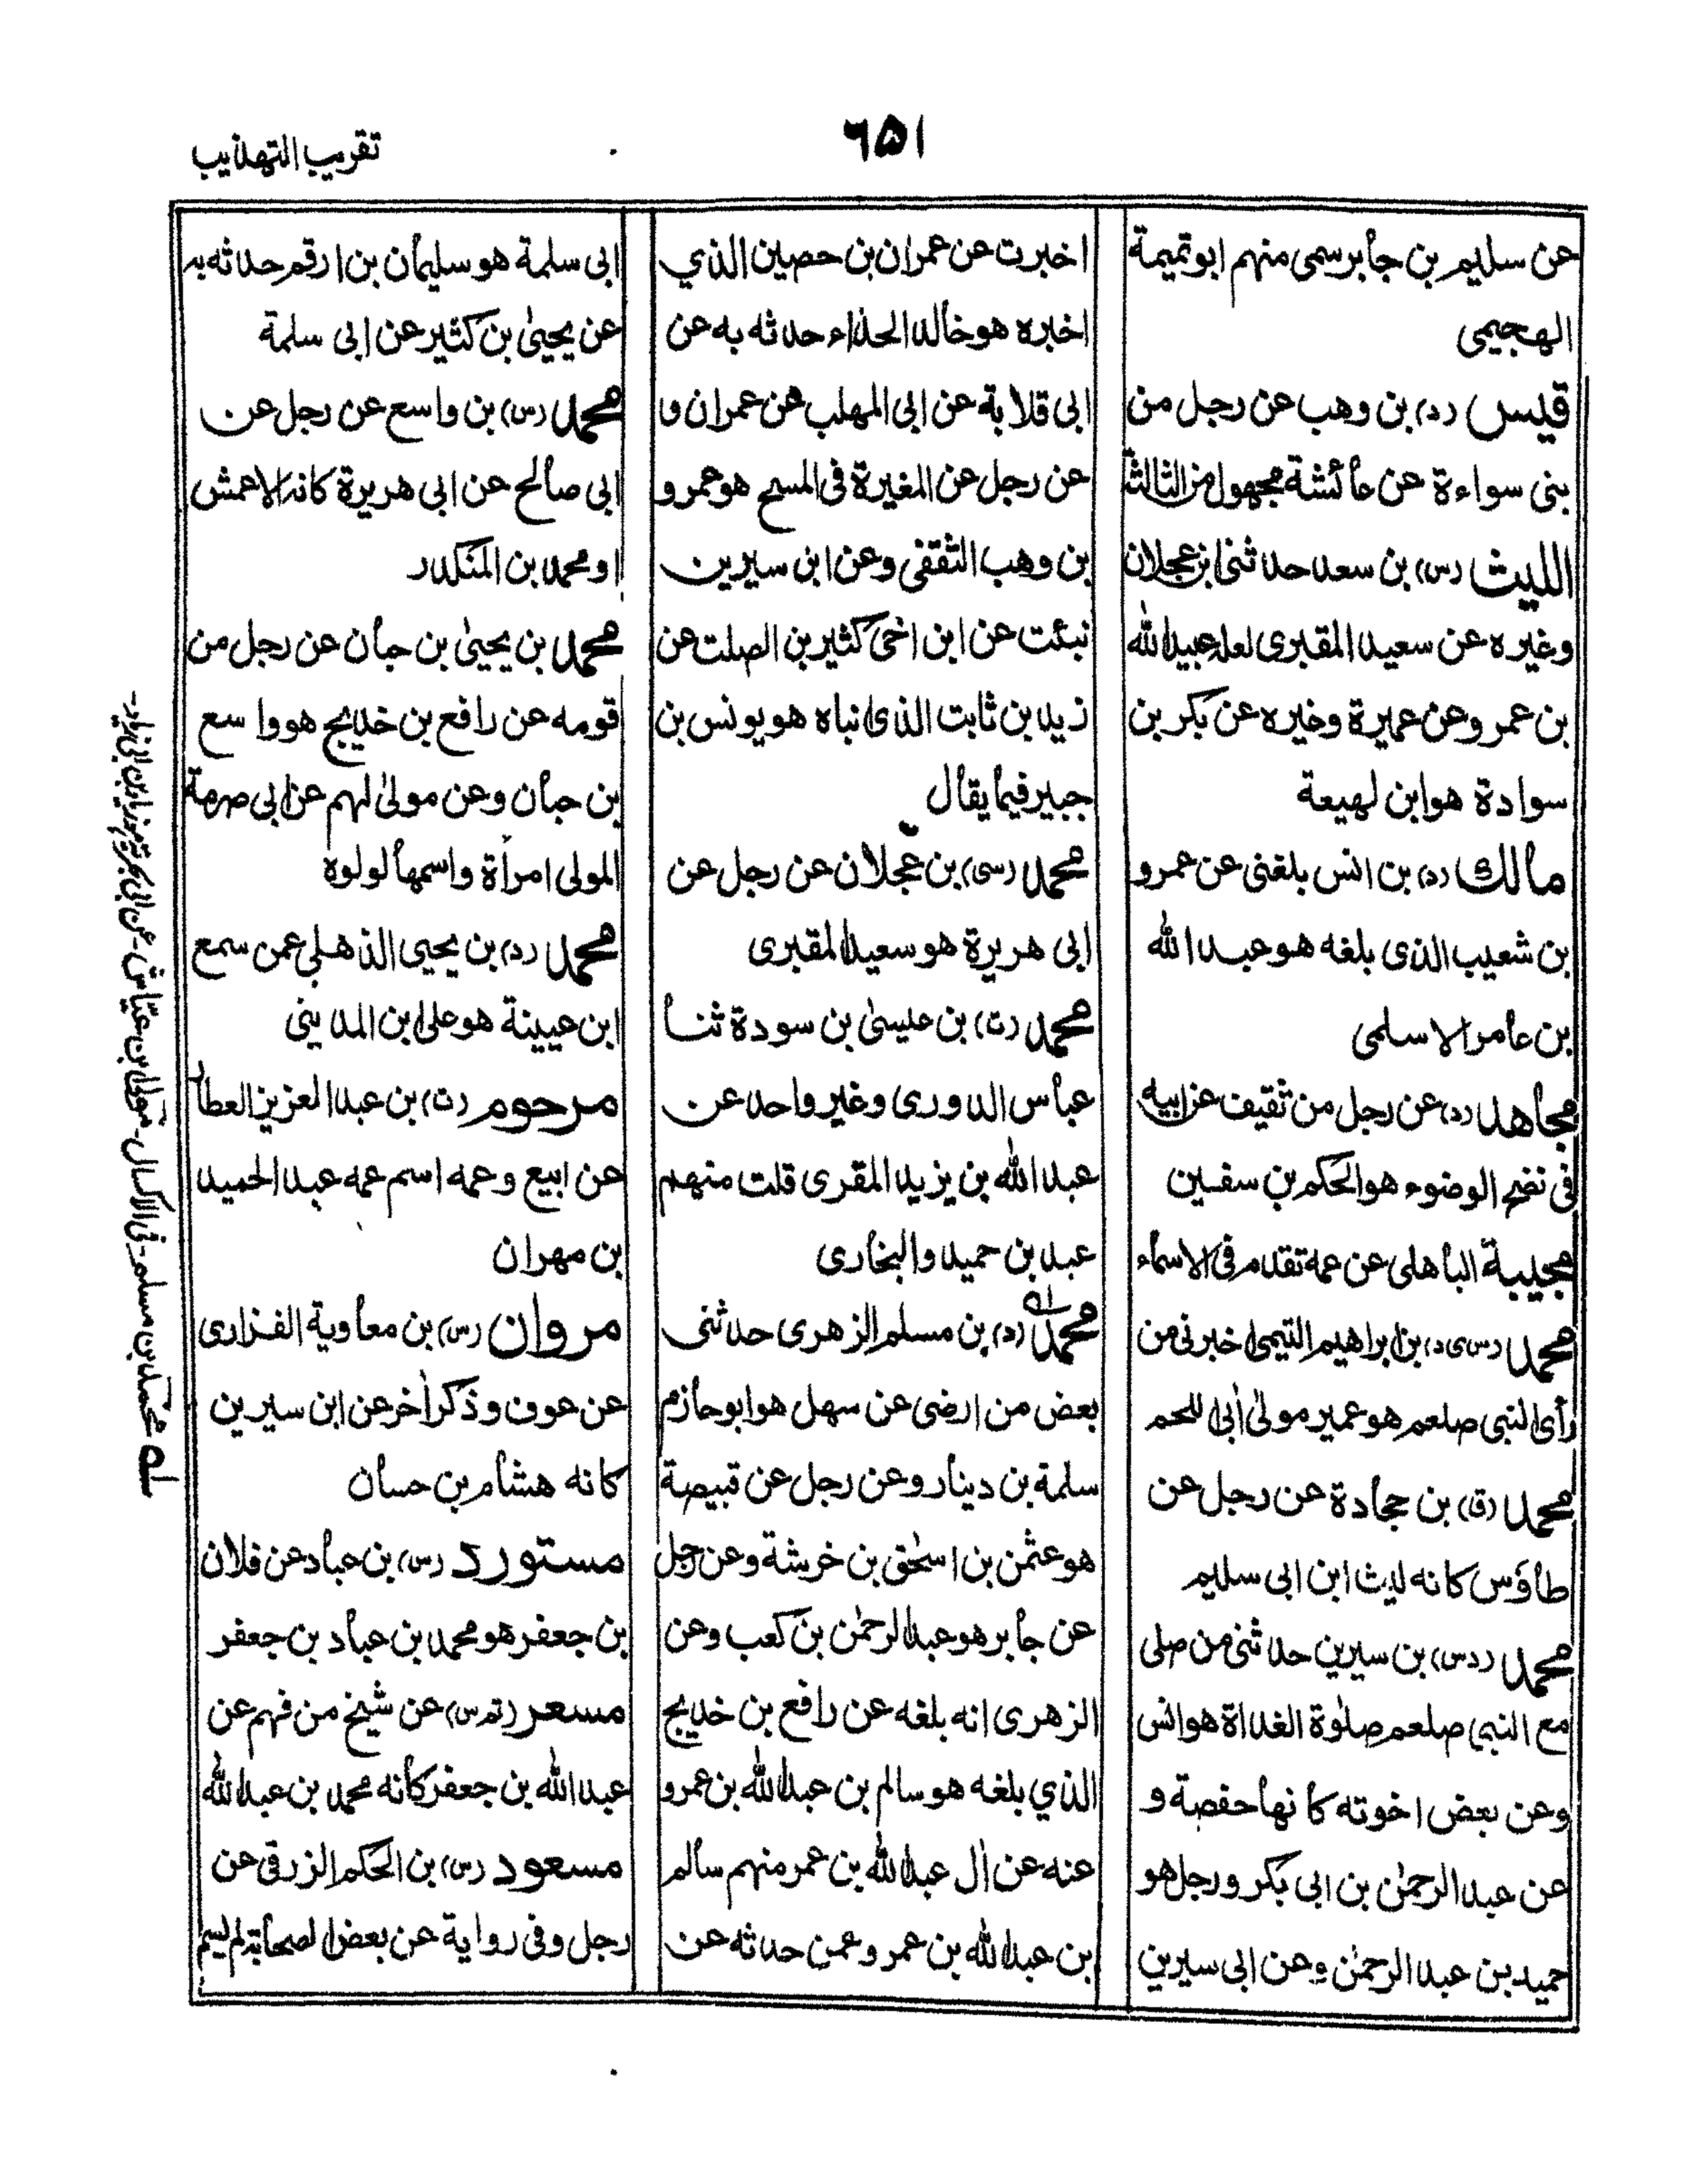 تقريب التهذيب
٦٥١
عن سليم بن جابر سمى منهم ابو تميمة
الهجيمى
قيس (د) بن وهب عن رجل من
بنى سواءة عن عائشة مجهول من الثالثة
الليث (س) بن سعد حدثنى ابن عجلان
وغيره عن سعيد المقبرى لعله عبيد الله
بن عمر وعن عميرة وغيره عن بكر بن
سوادة هو ابن لهيعة
مالك (د) بن انس بلغنى عن عمرو
بن شعيب الذى بلغه هو عبد الله
بن عامر الاسلمى
مجاهد (د) عن رجل من ثقيف عن ابيه
فى نضح الوضوء هو الحكم بن سفين
مجيبة الباهلى عن عمه تقدم فى الاسماء
محمد (س ى د) بن ابراهيم التيمى اخبرنى من
رأى النبى صلعم هو عمير مولىٰ اٰبى اللحم
محمد (ق) بن جحادة عن رجل عن
طاؤس كانه ليث ابن ابى سليم
محمد (د س) بن سيرين حدثنى من صلى
مع النبى صلعم صلوٰة الغداة هو انس
وعن بعض اخوته كانها حفصة و
عن عبد الرحمٰن بن ابى بكر ورجل هو
حميد بن عبد الرحمٰن وعن ابى سيرين
اخبرت عن عمران بن حصين الذي
اخبره هو خالد الحذاء حدثه به عن
ابى قلابة عن ابى المهلب عن عمران و
عن رجل عن المغيرة فى المسح هو عمرو
بن وهب الثقفى وعن ابن سيرين
نبئت عن ابن اخى كثير بن الصلت عن
زيد بن ثابت الذى نباه هو يونس بن
جبير فيما يقال
محمد (سى) بن عجلان عن رجل عن
ابى هريرة هو سعيد المقبرى
محمد (ت) بن عيسىٰ بن سودة ثنا
عباس الدورى وغير واحد عن
عبد الله بن يزيد المقرى قلت منهم
عبد بن حميد والبخارى
محمد (د) بن مسلم الزهرى حدثنى
بعض من ارضى عن سهل هو ابو حازم
سلمة بن دينار وعن رجل عن قبيصة
هو عثمٰن بن اسحٰق بن خرشة وعن رجل
عن جابر هو عبد الرحمٰن بن كعب وعن
الزهرى انه بلغه عن رافع بن خديج
الذي بلغه هو سالم بن عبد الله بن عمرو
عنه عن اٰل عبد الله بن عمر منهم سالم
بن عبد الله بن عمر وعمن حدثه عن
ابى سلمة هو سليمان بن ارقم حدثه به
عن يحيىٰ بن كثير عن ابى سلمة
محمد (س) بن واسع عن رجل عن
ابى صالح عن ابى هريرة كانه الاعمش
او محمد بن المنكدر
محمد بن يحيىٰ بن حبان عن رجل من
قومه عن رافع بن خديج هو واسع
بن حبان وعن مولىٰ لهم عن ابى صرمة
المولى امرأة واسمها لولوة
محمد (د) بن يحيى الذهلي عمن سمع
ابن عيينة هو على ابن المدينى
مرحوم (ت) بن عبد العزيز العطار
عن ابيع وعمه اسم عمه عبد الحميد
بن مهران
مروان (س) بن معاوية الفزارى
عن عوف وذكر اٰخر عن ابن سيرين
كانه هشام بن حسان
مستورد (س) بن عباد عن فلان
بن جعفر هو محمد بن عباد بن جعفر
مسعر (تم س) عن شيخ من فهم عن
عبد الله بن جعفر كانه محمد بن عبد الله
مسعود (س) بن الحكم الزرقى عن
رجل وفى رواية عن بعض الصحابة لم يسم
سلـه محمد بن مسلم - فى الاكمال - مولى بن عياش - عن ابى بحرية